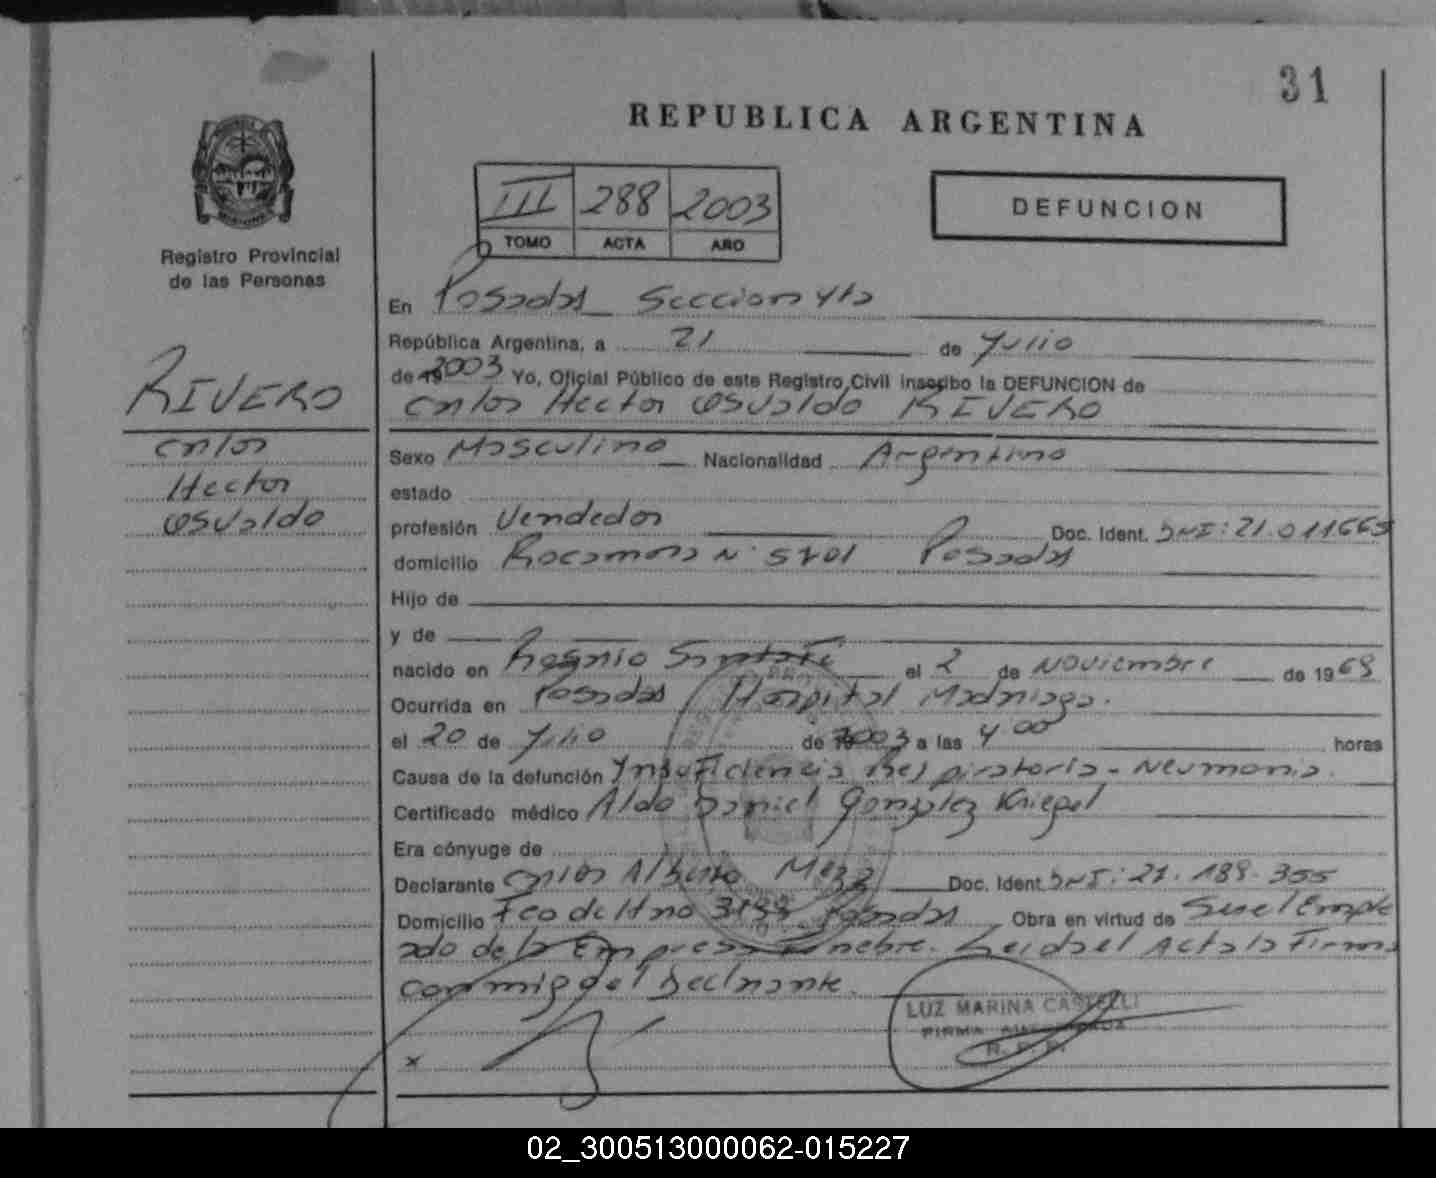 31
REPUBLICA ARGENTINA
III 288 2003
TOMO ACTA AÑO
DEFUNCION
Registro Provincial
de las Personas
RIVERO
Carlos
Hector
Osvaldo
En Posadas Seccion 4ta
República Argentina, a 21 de Julio
de 19 2003 Yo, Oficial Público de este Registro Civil inscribo la DEFUNCION de
Carlos Hector Osvaldo RIVERO
Sexo Masculino Nacionalidad Argentino
estado
profesión Vendedor Doc. Ident. DNI: 21.011665
domicilio Rocamora N° 5701 Posadas
Hijo de
y de
nacido en Rosario Santa Fe el 2 de Noviembre de 1969
Ocurrida en Posadas Hospital Madariaga.
el 20 de Julio de 2003 a las 4 00 horas
Causa de la defunción Insuficiencia Respiratoria - Neumonia.
Certificado médico Aldo Daniel Gonzalez Kriegel
Era cónyuge de
Declarante Carlos Alberto Meza Doc. Ident. DNI: 21.189.355
Domicilio Fco de Haro 3199 Posadas Obra en virtud de Ser el Emple
ado de la Empresa Funebre. Leida el Acta la Firma
conmigo el Declarante.
LUZ MARINA CASTELLI
FIRMA AUTORIZADA
R. P. P.
x
02_300513000062-015227